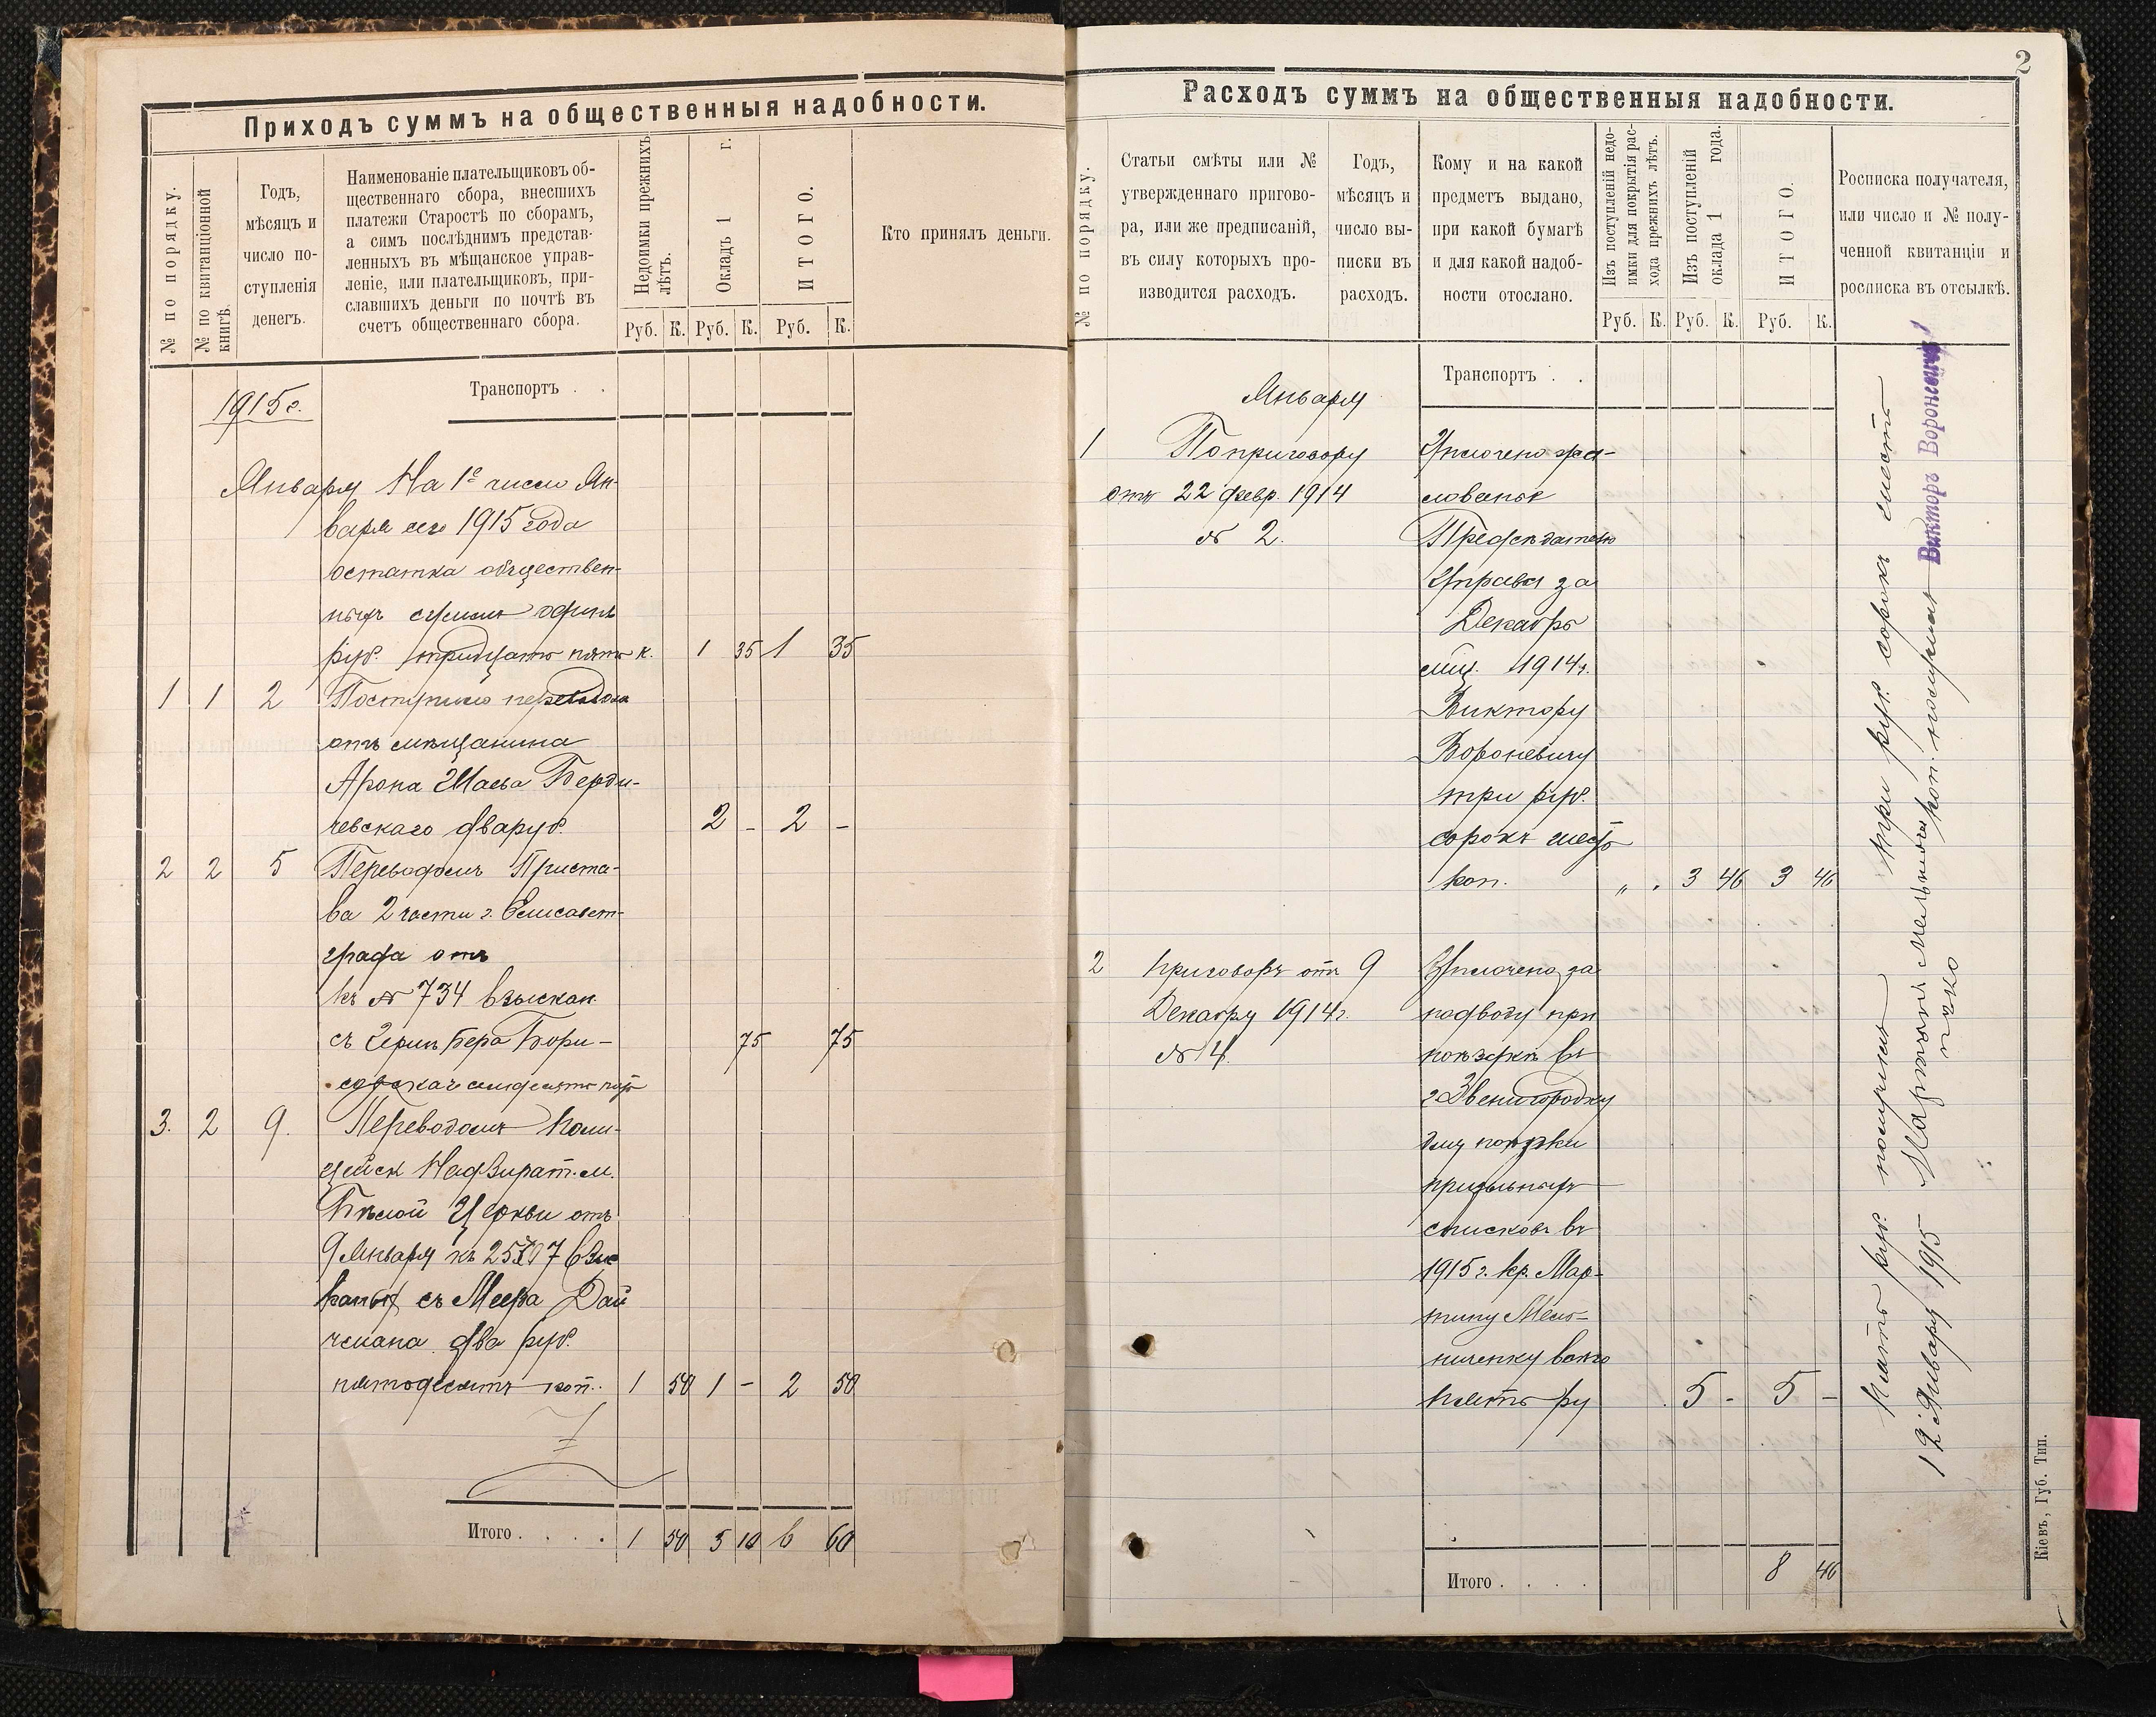 Приходъ суммъ на общественныя надобности.
№ по порядку.
№ по квитанціонной
книгѣ.
Годъ,
мѣсяцъ и
число по-
ступленія
денегъ.
Наименованіе плательщиковъ об-
щественнаго сбора, внесшихъ
платежи Старостѣ по сборамъ,
а симъ послѣднимъ представ-
ленныхъ въ мѣщанское управ-
леніе, или плательщиковъ, при-
славшихъ деньги по почтѣ въ
счетъ общественнаго сбора.
Недоимки прежнихъ
лѣтъ.
Окладъ 1 г.
ИТОГО.
Кто принялъ деньги.
Руб. К. Руб. К. Руб. К.
Транспортъ . .
1915 г.
Января На 1е число Ян-
варя сего 1915 года
остатка обществен-
ныхъ суммъ одинъ
руб. тридцать пять к. 1 35 1 35
1 1 2 Поступило переводом
отъ мѣщанина
Арона Шаева Берди-
чевскаго два руб. 2 - 2 -
2 2 5 Переводомъ Приста-
ва 2 части г. Елисавет-
града отъ
къ № 734 взыскан.
съ Бера Бори- 75 75
семдесять пять
3. 2 9. Переводомъ Поли-
цейск Надзират. м.
Бѣлой Церкви отъ
9 Января къ взыс
каных съ Меера Дай
чмана два руб.
пятьдесятъ коп. 1 50 1 - 2 50
Итого . . . . 1 50 5 10 6 60
2
Расходъ суммъ на общественныя надобности.
№ по порядку.
Статьи смѣты или №
утвержденнаго пригово-
ра, или же предписаній,
въ силу которыхъ про-
изводится расходъ.
Годъ,
мѣсяцъ и
число вы-
писки въ
расходъ.
Кому и на какой
предметъ выдано,
при какой бумагѣ
и для какой надоб-
ности отослано.
Изъ поступленій недо-
имки для покрытія рас-
хода прежнихъ лѣтъ.
Изъ поступленій
оклада 1 года.
ИТОГО.
Росписка получателя,
или число и № полу-
ченной квитанціи и
росписка въ отсылкѣ.
Руб. К. Руб. К. Руб. К.
Транспортъ . .
Января
1 По приговору
отъ 22 февр. 1914
№ 2.
Уплочено жа-
лованья
Предсѣдателю
Управы за
Декабрь
мѣц. 1914 г.
Виктору
Вороневичу
три руб.
сорокъ шесть
коп. „ . 3 46 3 46
2 Приговоръ отъ 9
Декабря 1914 г.
№ 4.
Уплочено за
подводу при
поѣздкѣ въ
г. Звенигородку
для повѣрки
призывныхъ
списковъ въ
1915 г. кр. Мар-
тину Мель-
ниченку всего
пять ру . 5 - 5 -
Итого . . . . 8 46
три руб. сорокъ шесть
коп. получилъ Викторъ Вороневичъ
Пять руб. получилъ
12 Января 1915 Мартинъ Мельничен
нко
Кіевъ, Губ. Тип.